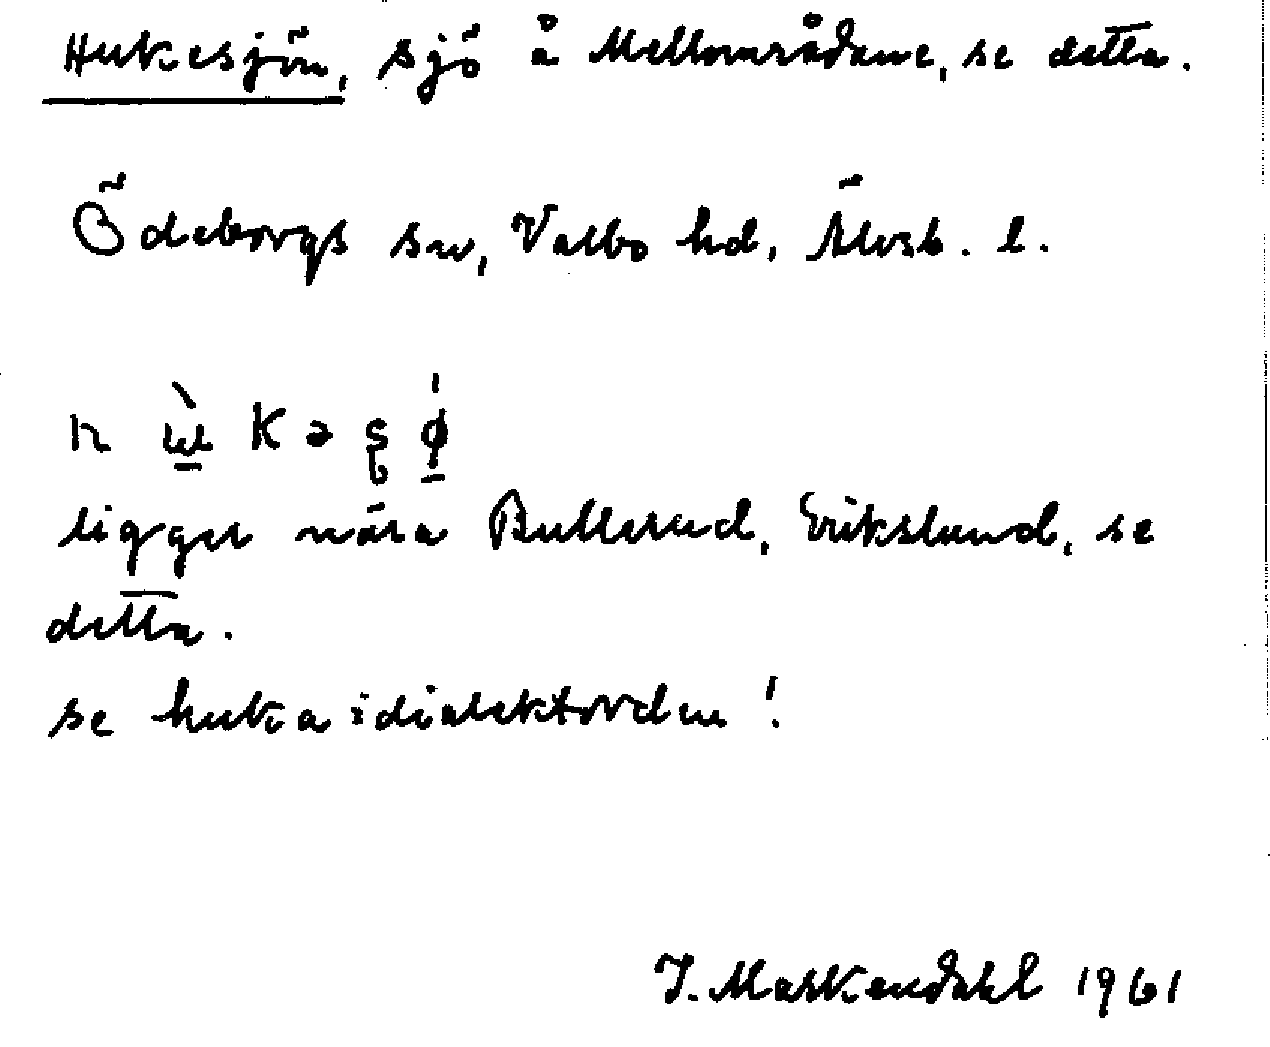 Hukesjön, sjö å Mellområdane, se detta.
Ödeborgs sn, Valbo hd, Älvsb. l.
ligger nära Bullerud, Erikslund, se
detta.
se huka i dialektorden!
J. Maskendahl 1961